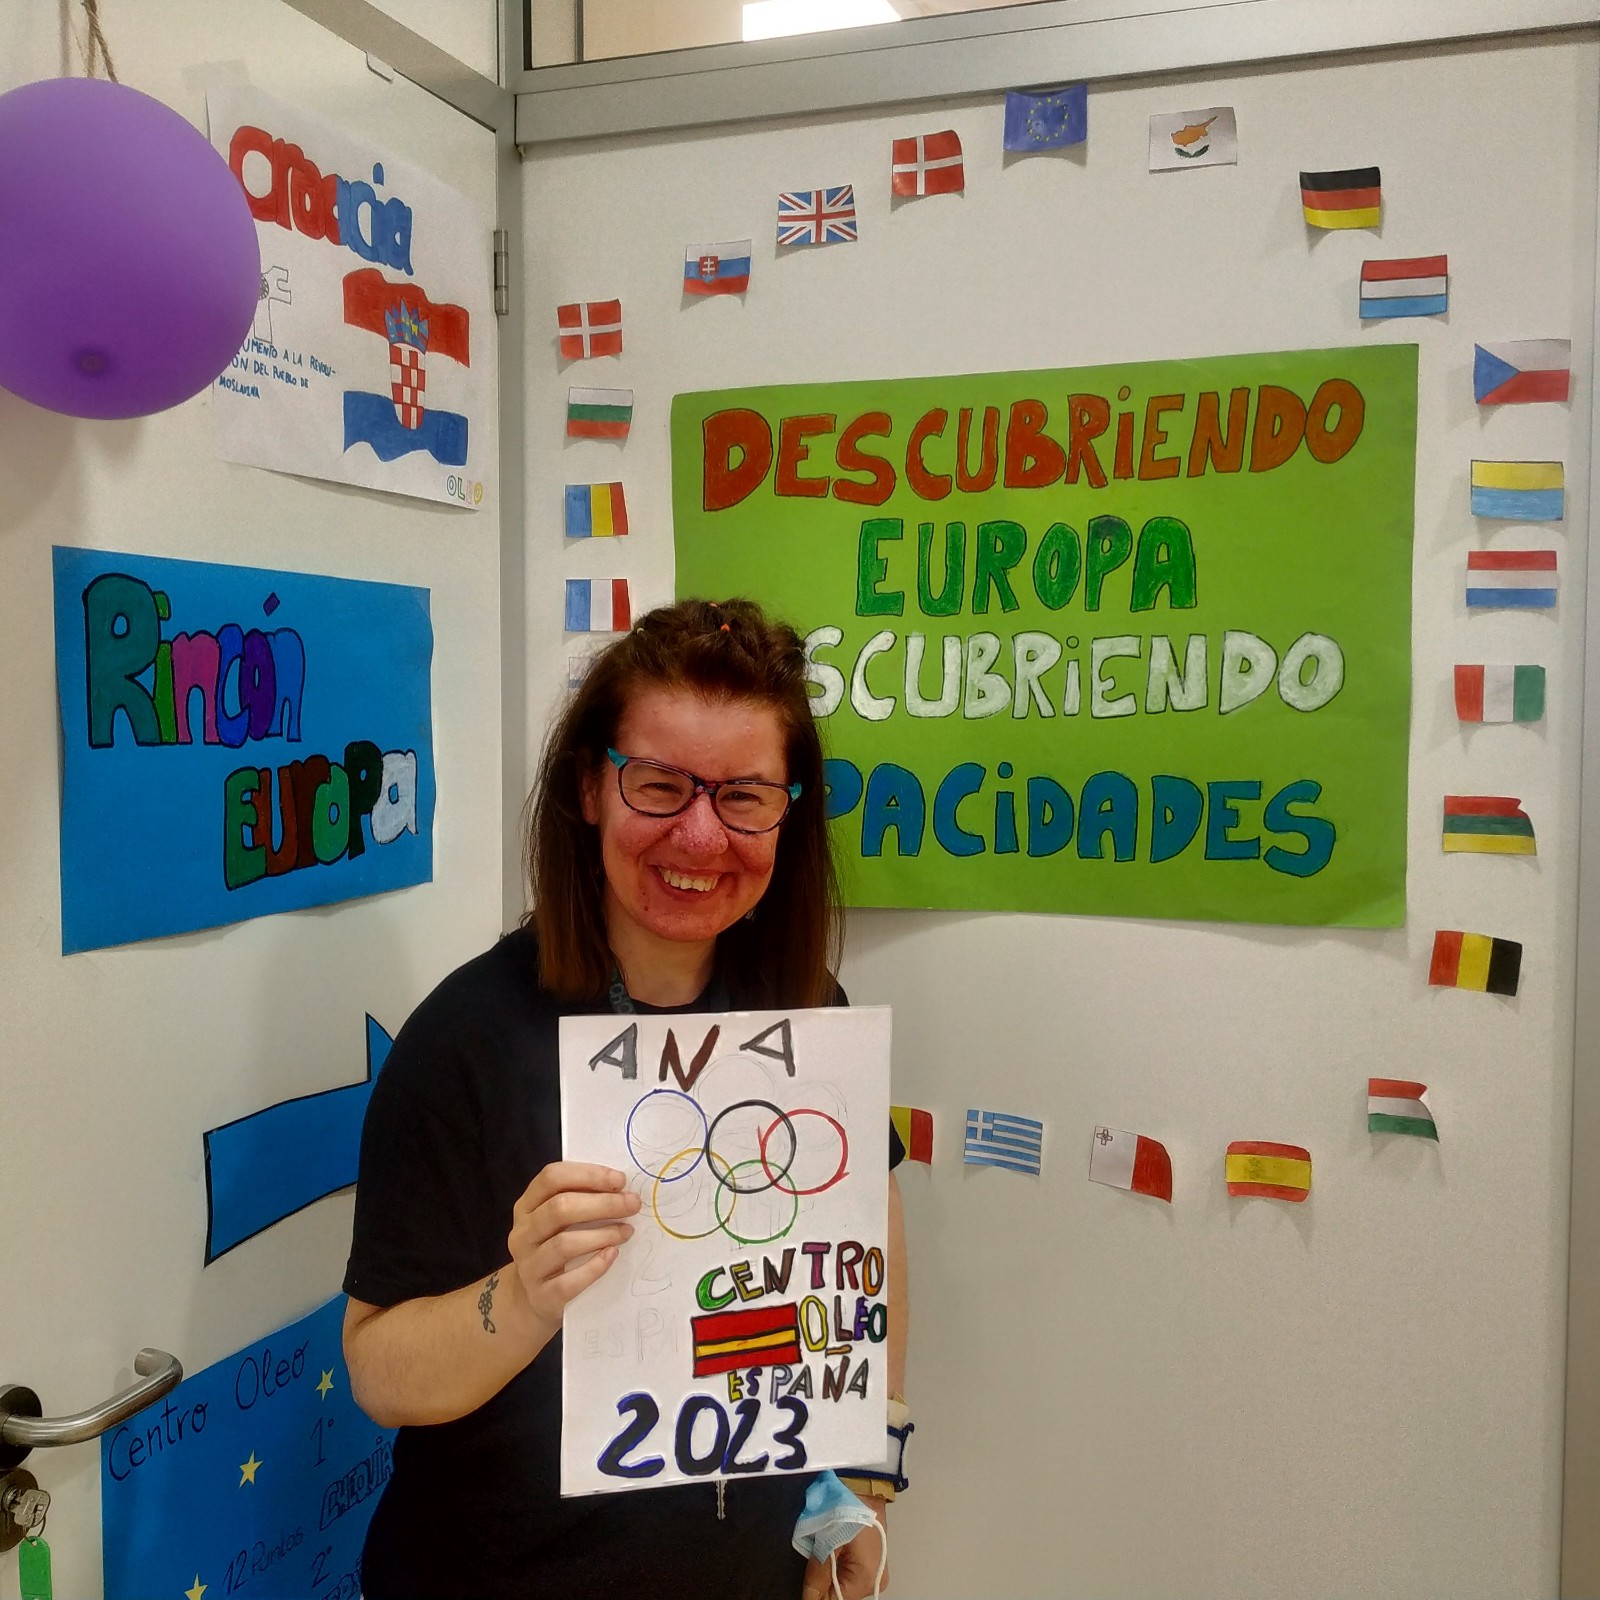 Croacia
UMENTO A LA REVOLU-
ÓN DEL PUEBLO DE
MOSLAVINA
OLEO
Rincón
Europa
DESCUBRIENDO
EUROPA
SCUBRIENDO
PACIDADES
ANA
CENTRO
OLEO
ESPAÑA
2023
Centro Oleo
1º
CHEQUIA
12 Puntos
2º